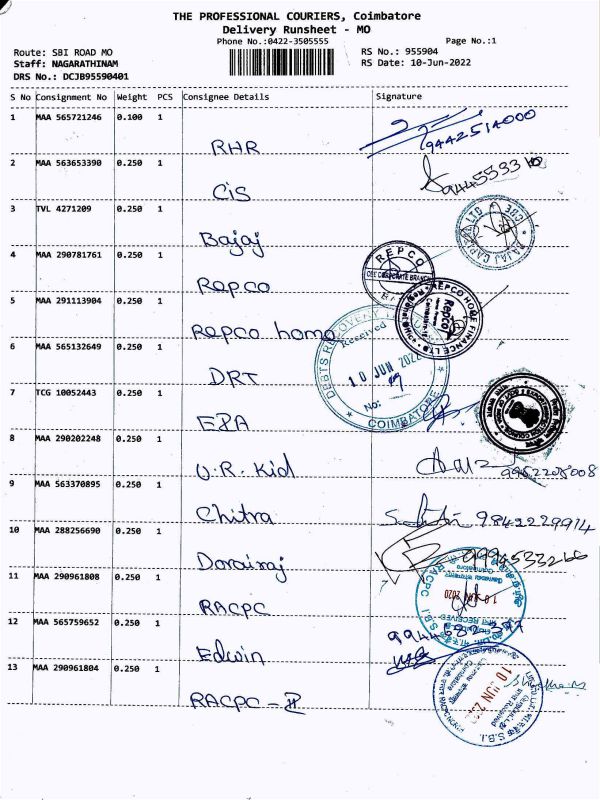 THE PROFESSIONAL COURIERS, Coimbatore
Delivery Runsheet - MO
Phone No.:0422-3505555
Page No.:1
Route: SBI ROAD MO
RS No.: 955904
Staff: NAGARATHINAM
RS Date: 10-Jun-2022
DRS No.: DCJB95590401
S No Consignment No Weight PCS Consignee Details Signature
1 MAA 565721246 0.100 1
RHR
2 MAA 563653390 0.250 1
CiS
3 TVL 4271209 0.250 1
Bajaj
4 MAA 290781761 0.250 1
Repco
REPCO
5 MAA 291113904 0.250 1
Repco home
REPCO HOME FINANCE LTD
Repco
DEBTS RECOVERY
Received
10 JUN 2022
No:
COIMBATORE
6 MAA 565132649 0.250 1
DRT
7 TCG 10052443 0.250 1
8 MAA 290202248 0.250 1
U.R. Kid
9 MAA 563370895 0.250 1
Chitra 9842229914
10 MAA 288256690 0.250 1
Dorairaj
11 MAA 290961808 0.250 1
RACPC
12 MAA 565759652 0.250 1
Edwin
13 MAA 290961804 0.250 1
RACPC - II